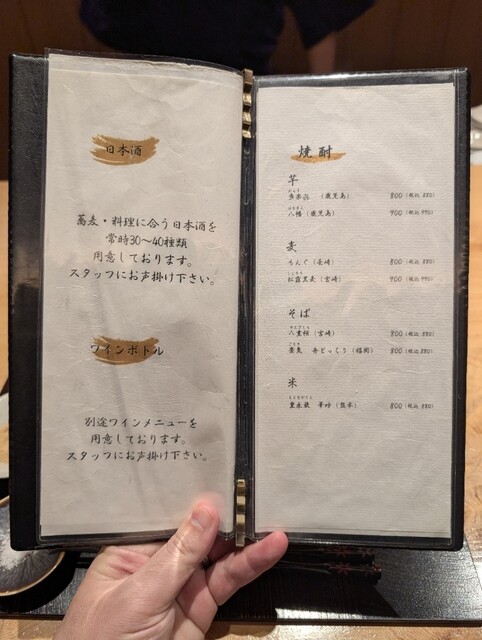 日本酒
蕎麦・料理に合う日本酒を
常時30〜40種類
用意しております。
スタッフにお声掛け下さい。
ワインボトル
別途ワインメニューを
用意しております。
スタッフにお声掛け下さい。
焼酎
芋
(鹿児島) 800(税込 880)
八幡(鹿児島) 900(税込 990)
麦
ちんぐ(長崎) 800(税込 880)
松露黒麦(宮崎) 900(税込 990)
そば
八重桜(宮崎) 800(税込 880)
(福岡) 800(税込 880)
米
豊永蔵 (熊本) 800(税込 880)